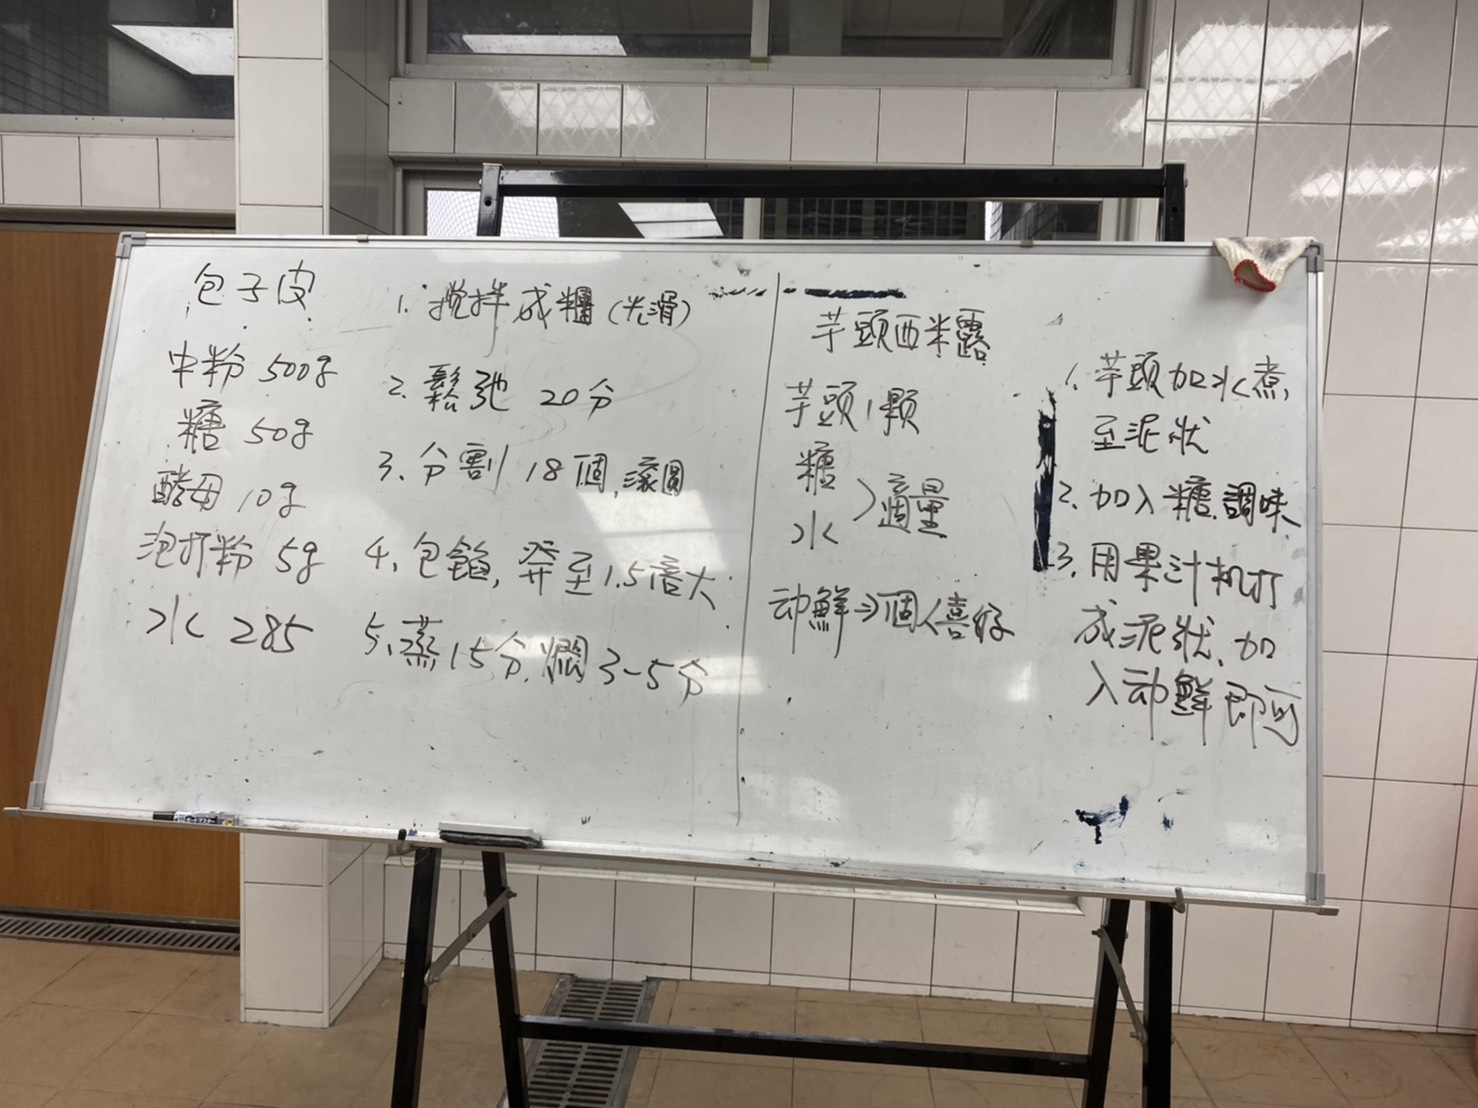 包子皮
中粉 500g
糖 50g
酵母 10g
泡打粉 5g
水 285
1. 攪拌成糰(光滑)
2. 鬆弛 20分
3. 分割 18個, 滾圓
4. 包餡, 發至1.5倍大
5. 蒸15分, 燜3-5分
芋頭西米露
芋頭1顆
糖
水
>適量
动鮮→個人喜好
1. 芋頭加水煮,
至泥狀
2. 加入糖.調味
3. 用果汁机打
成泥狀.加
入动鮮即可